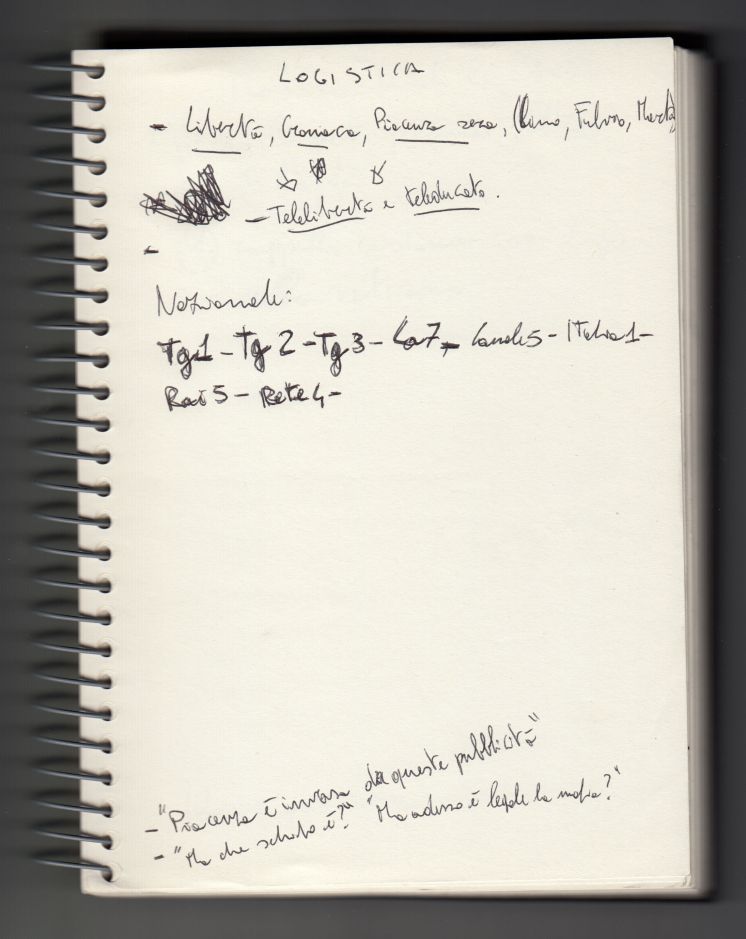 LOGISTICA
- Libertà, Cronaca, Piacenza sera, ( Fulvio, Marta)
- Telelibertà e teleducato.
-
Nazionale:
Tg1 - Tg2 - Tg3 - La7 - Canale5 - Italia1 -
Rai5 - Rete4 -
- "Piacenza è invasa da queste pubblicità"
- "Ma che scherzo è?" "Ma adesso è legale la mafia?"